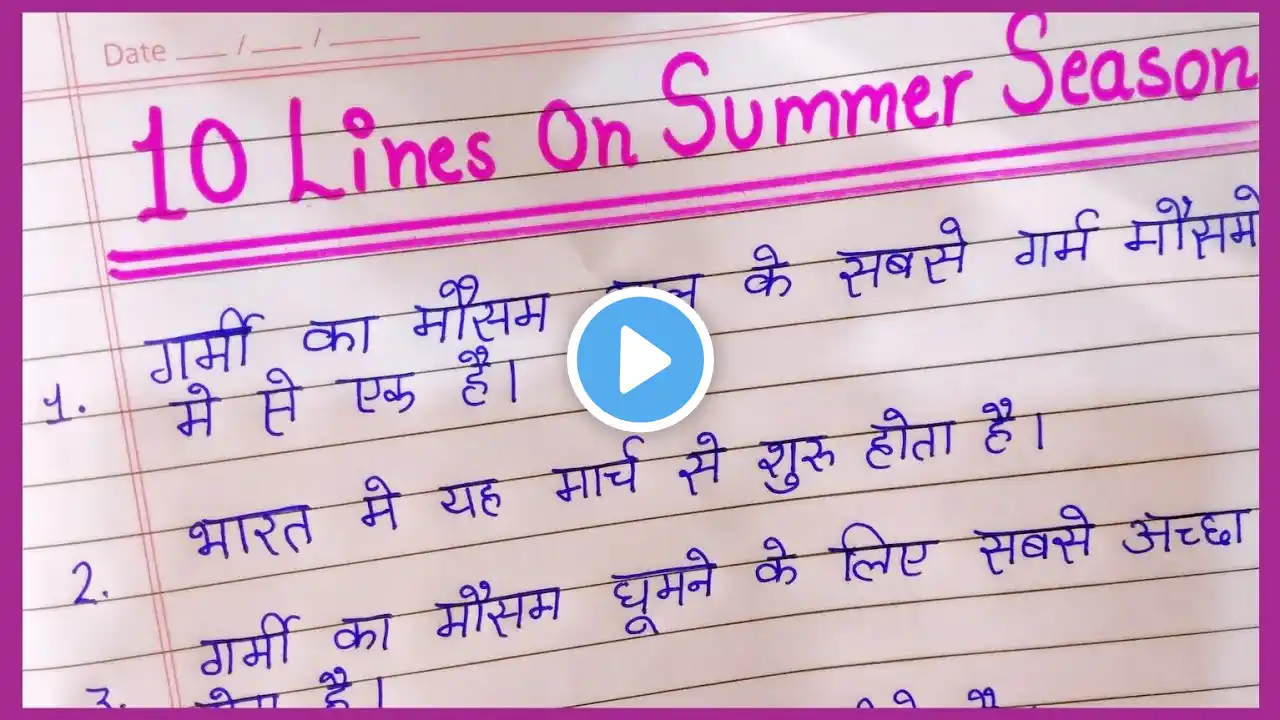 Date __ / __ / ____
10 Lines On Summer Season
1. गर्मी का मौसम के सबसे गर्म मौसमो
मे से एक है।
2. भारत मे यह मार्च से शुरु होता है।
3. गर्मी का मौसम घूमने के लिए सबसे अच्छा
है।